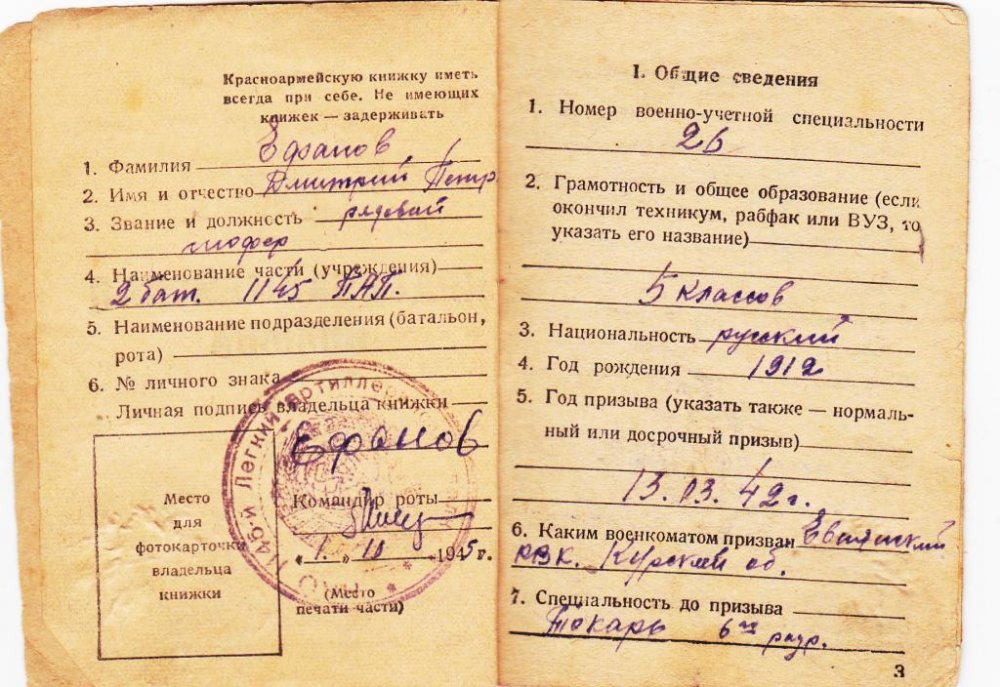 Красноармейскую книжку иметь
всегда при себе. Не имеющих
книжек — задерживать
1. Фамилия Ефанов
2. Имя и отчество Дмитрий Петр.
3. Звание и должность рядовой
шофер
4. Наименование части (учреждения)
2 бат. 1145 ПАП.
5. Наименование подразделения (батальон,
рота)
6. № личного знака
Личная подпись владельца книжки
Ефанов
Место
для
фотокарточки
владельца
книжки
Командир роты
«1» 10 1945 г.
(Место
печати части)
Легкий Артиллер
I. Общие сведения
1. Номер военно-учетной специальности
26
2. Грамотность и общее образование (если
окончил техникум, рабфак или ВУЗ, то
указать его название)
5 классов
3. Национальность русский
4. Год рождения 1912
5. Год призыва (указать также — нормаль-
ный или досрочный призыв)
13.03.42 г.
6. Каким военкоматом призван
РВК. Курской об.
7. Специальность до призыва
Токарь 6го разр.
3